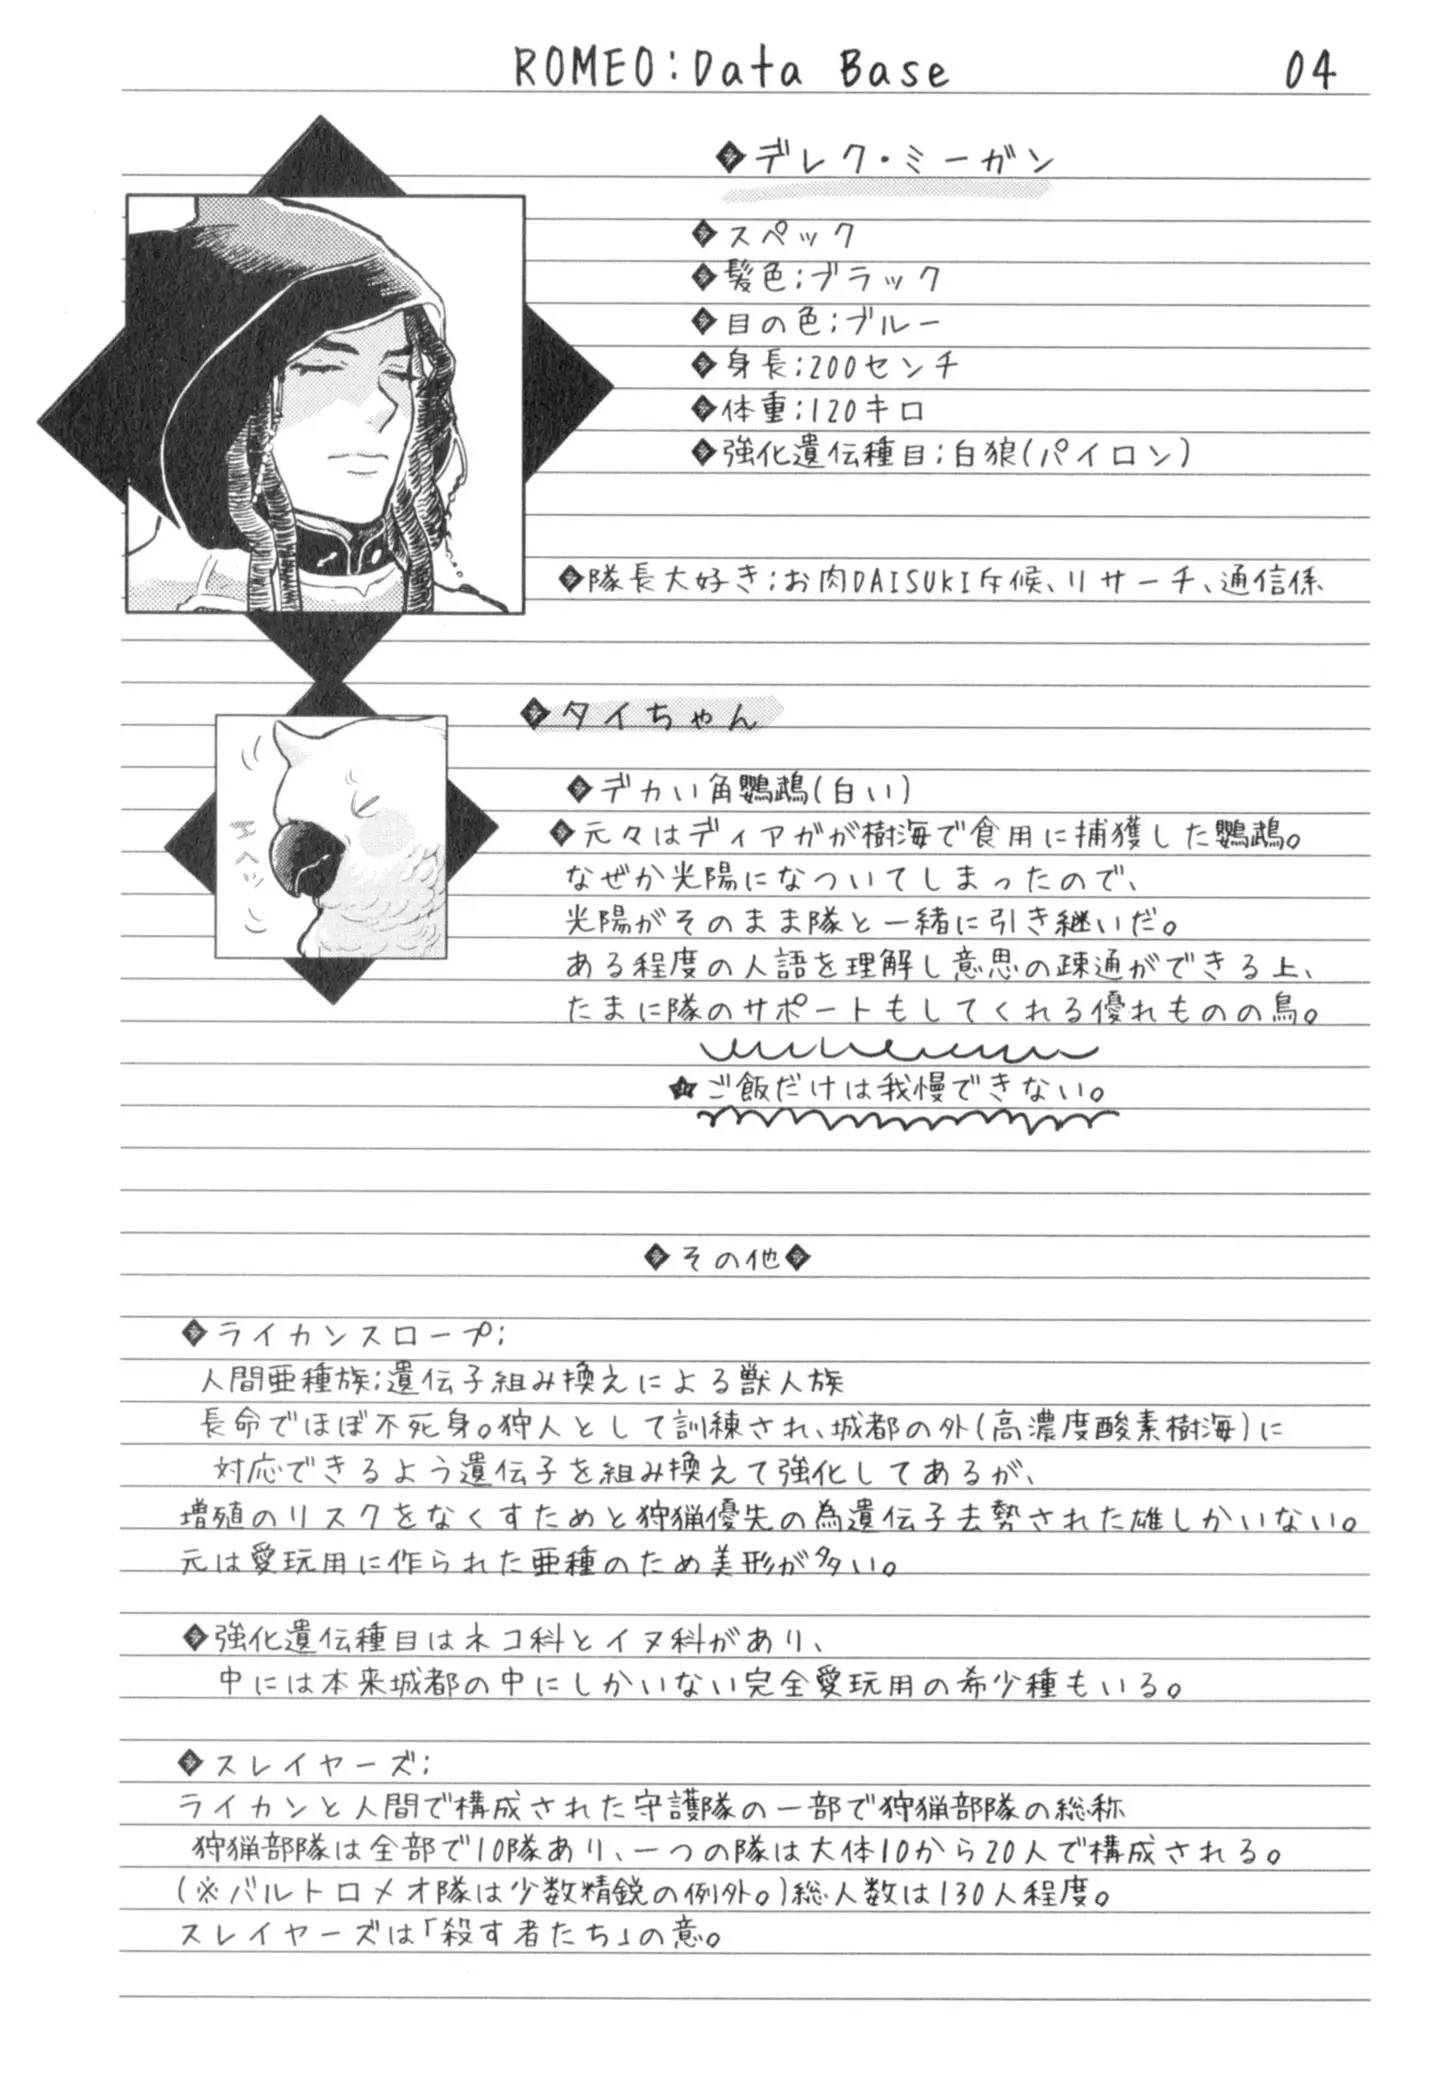 ROMEO:Data Base 04
◆デレク・ミーガン
◆スペック
◆髪色:ブラック
◆目の色:ブルー
◆身長:200センチ
◆体重:120キロ
◆強化遺伝種目:白狼(パイロン)
◆隊長大好き:お肉DAISUKI斥候、リサーチ、通信係
◆タイちゃん
エヘッ
◆デカい角鸚鵡(白い)
◆元々はディアガが樹海で食用に捕獲した鸚鵡。
なぜか光陽になついてしまったので、
光陽がそのまま隊と一緒に引き継いだ。
ある程度の人語を理解し意思の疎通ができる上、
たまに隊のサポートもしてくれる優れものの鳥。
★ご飯だけは我慢できない。
◆その他◆
◆ライカンスロープ:
人間亜種族:遺伝子組み換えによる獣人族
長命でほぼ不死身。狩人として訓練され、城都の外(高濃度酸素樹海)に
対応できるよう遺伝子を組み換えて強化してあるが、
増殖のリスクをなくすためと狩猟優先の為遺伝子去勢された雄しかいない。
元は愛玩用に作られた亜種のため美形が多い。
◆強化遺伝種目はネコ科とイヌ科があり、
中には本来城都の中にしかいない完全愛玩用の希少種もいる。
◆スレイヤーズ:
ライカンと人間で構成された守護隊の一部で狩猟部隊の総称
狩猟部隊は全部で10隊あり、一つの隊は大体10から20人で構成される。
(※バルトロメオ隊は少数精鋭の例外。)総人数は130人程度。
スレイヤーズは「殺す者たち」の意。